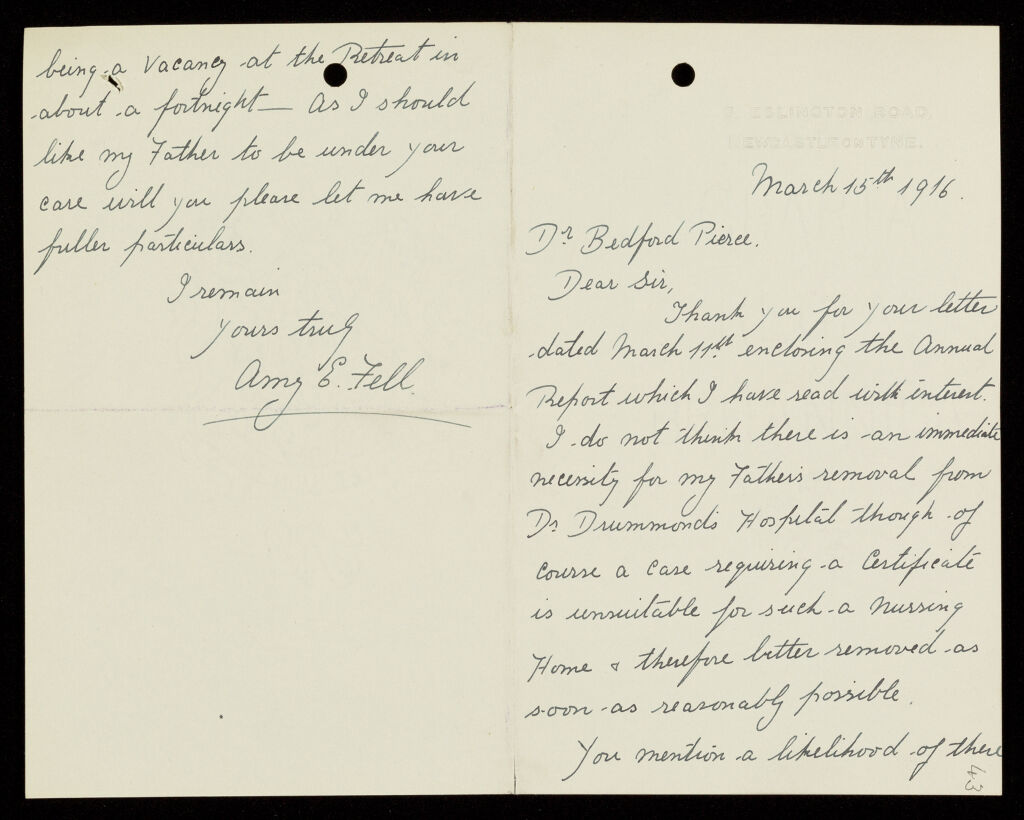 ESLINGTON ROAD,
NEWCASTLE ON TYNE.
March 15th 1916.
Dr Bedford Pierce.
Dear Sir,
Thank you for your letter
dated March 11th enclosing the Annual
Report which I have read with interest.
I do not think there is an immediate
necessity for my Father's removal from
Dr Drummond's Hospital though of
course a case requiring a Certificate
is unsuitable for such a Nursing
Home & therefore better removed as
soon as reasonably possible.
You mention a likelihood of there
43
being a vacancy at the Retreat in
about a fortnight — As I should
like my Father to be under your
care will you please let me have
fuller particulars.
I remain
yours truly
Amy E. Fell.